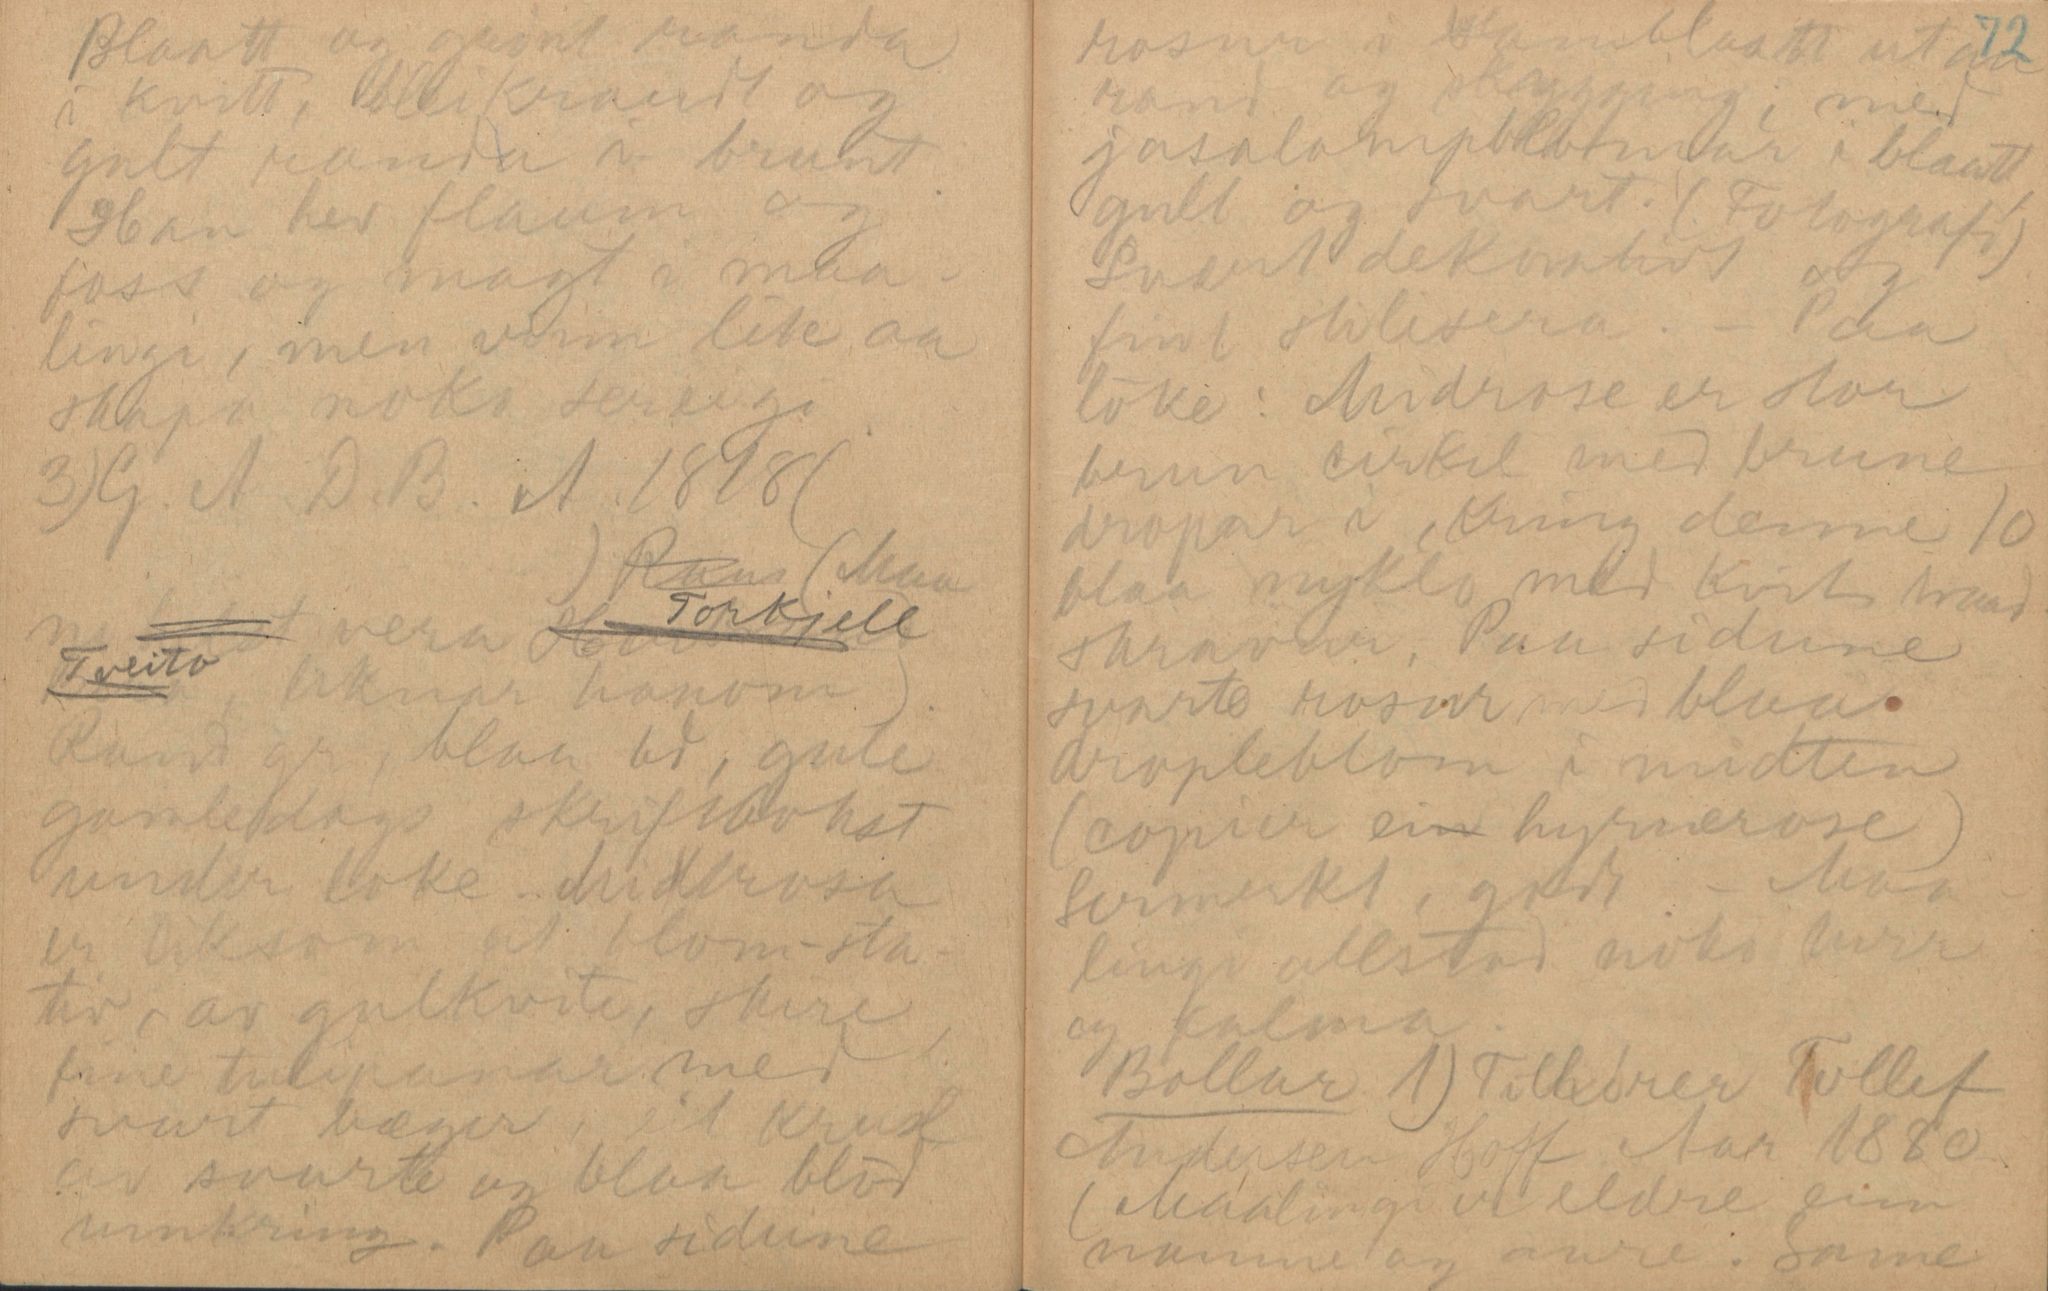 Blaatt og grönt randa
i kvitt, bleikraudt og
gult randa i brunt.
Han hev flaum og
foss og magt i maa-
lingi, men vinn lite aa
skapa noko sereigi.
3) G. A. D. B. A. 1818 (
) Raus (Maa
vera Torkjell
Tveito, liknar honom).
Rand gr, blaa bd, gule
gamledags skriftbokst
under loke. Midtrosa
er liksom at blom-sta-
tiv, av gulkvite, skire,
fine tulipanar med
svart bæger, eit krus
av svarte og blaa blöd
umkring. Paa sidune
72
rosur i blaatt utan
rand og skygging, med
josolampeblomar i blaatt,
gult og svart. (Fotografi)
Svært dekorativt og
fint stilisera. - Paa
löke: Midrose er stor
brun cirkel med brune
dropar i, kring denne 10
blaa nyklo med kvite
skravur. Paa sidune
svarte rosur med blaa
dropleblom i midten
(copier ein hyrnerose)
Sermerkt, godt - Maa-
lingi allstad noko turr
og falma.
Bollar 1) Tilhörer Tollef
Andersen Hoff Aar 1880
(Maalingi er eldre enn
namne og aare. Same